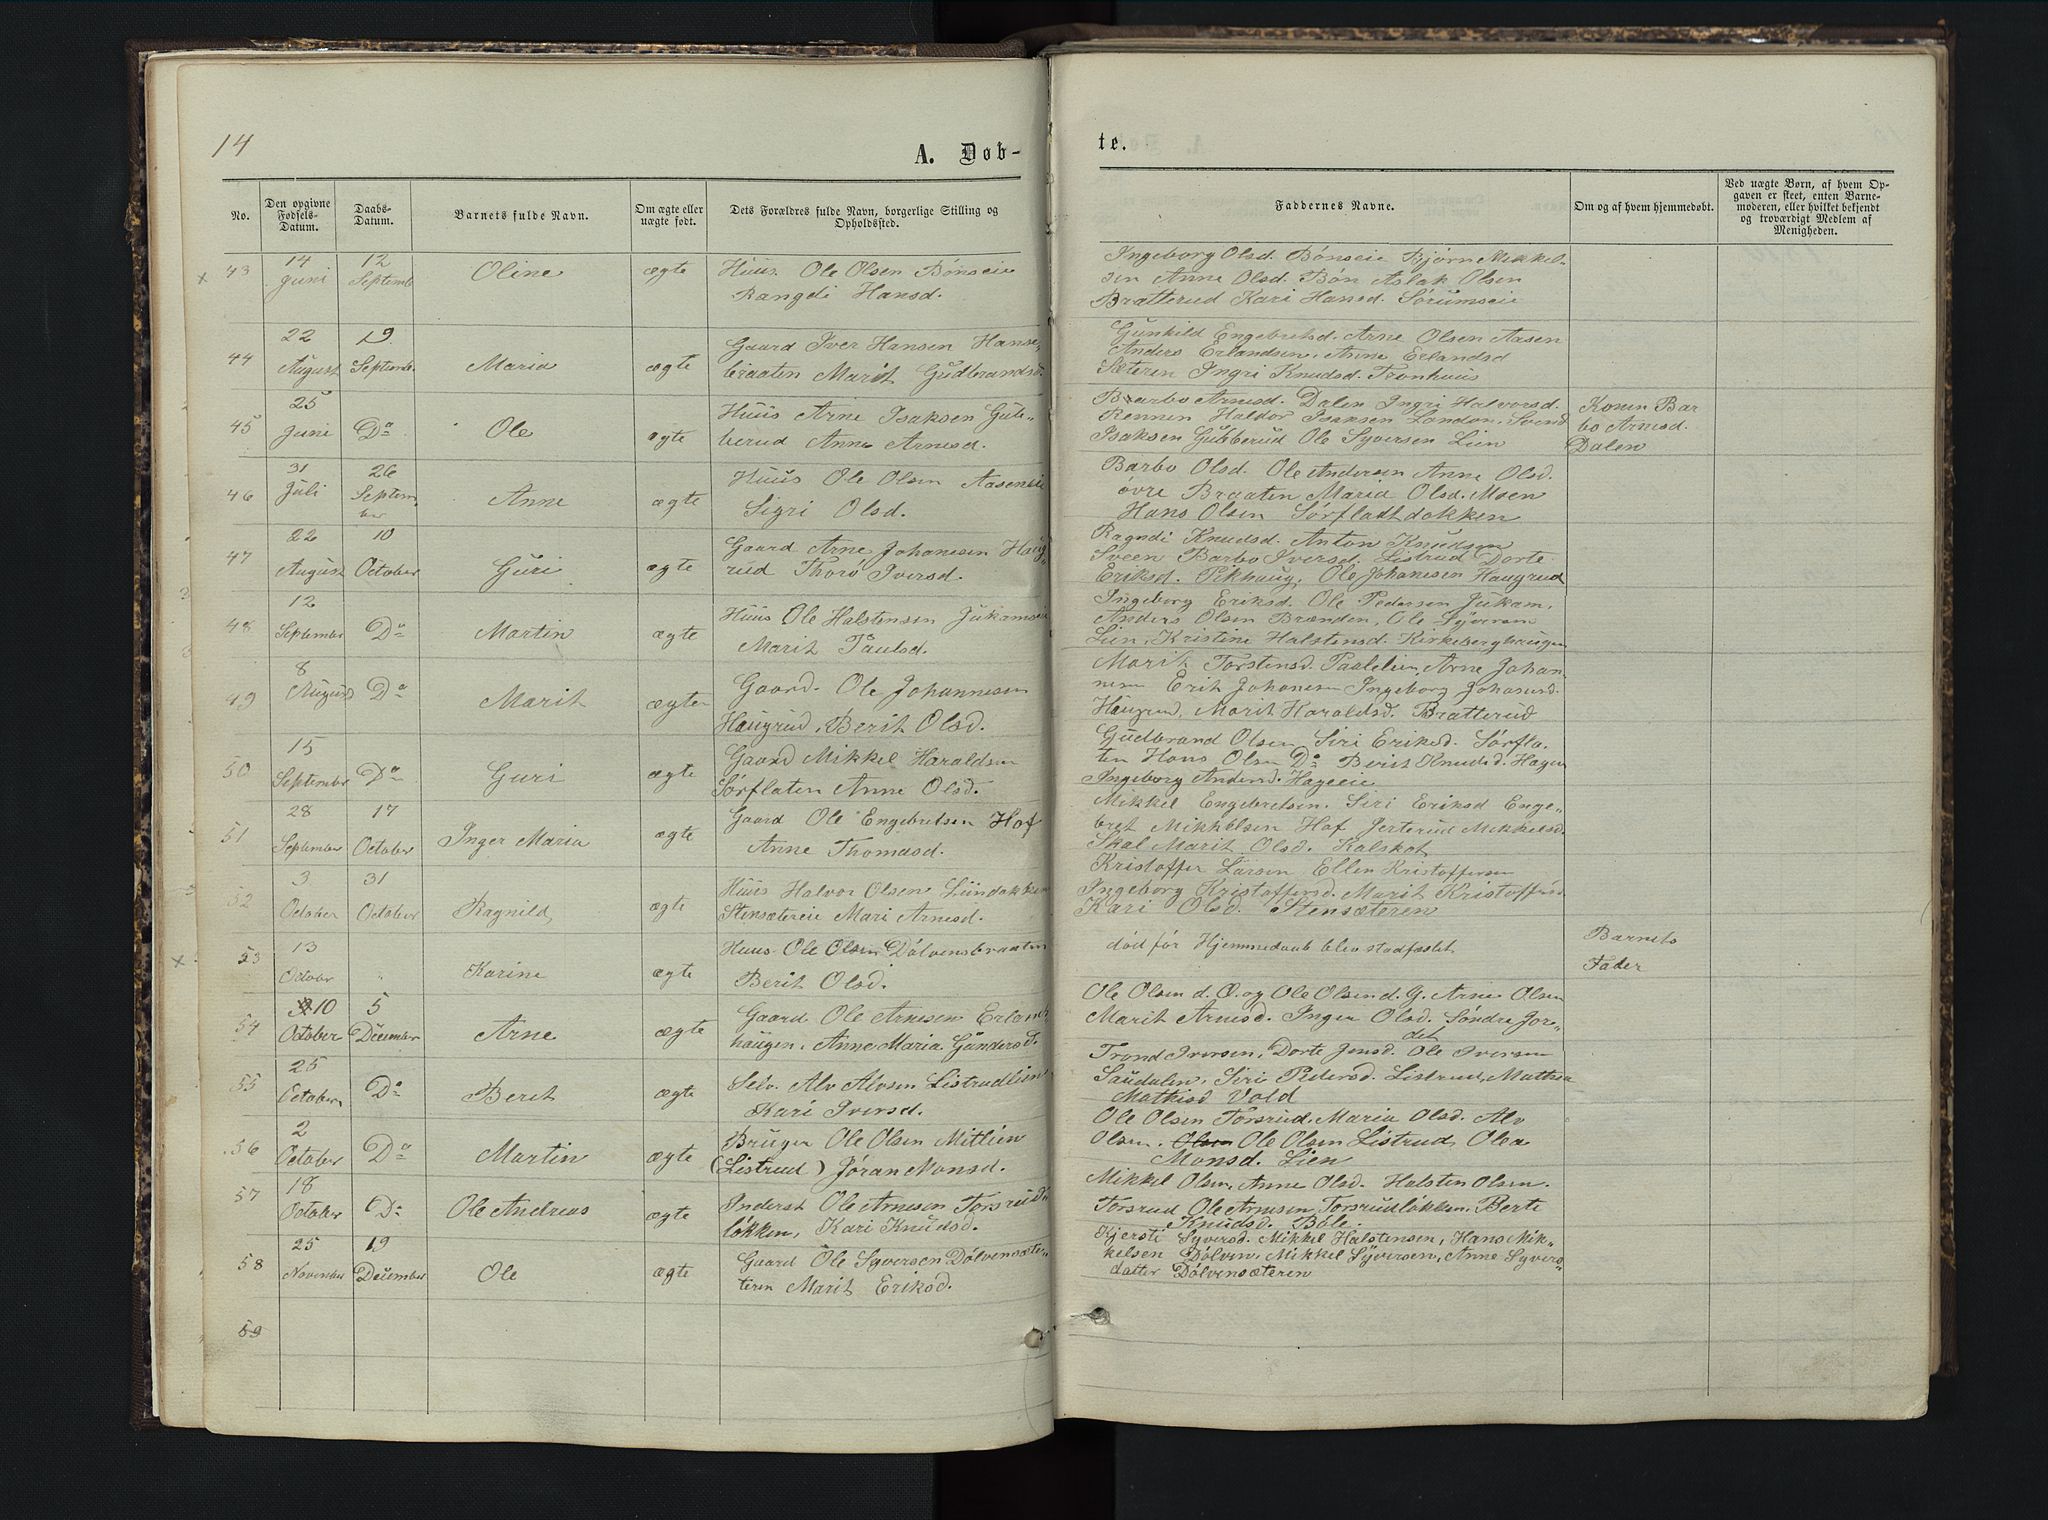 14
A. Døb-
te.
No.
Den opgivne Fødsels-Datum.
Daabs-Datum.
Barnets fulde Navn.
Om ægte eller uægte født.
Dets Forældres fulde Navn, borgerlige Stilling og Opholdssted.
Faddernes Navne.
Om og af hvem hjemmedøbt.
Ved uægte Børn, af hvem Opgaven er skeet, enten Barnemoderen, eller hvilket bekjendt og troværdigt Medlem af Menigheden.
43 14 Juni 12 Septemb Oline ægte
Huus Ole Olsen Bønseie
Rangdi Hansd.
Ingeborg Olsd. Bønseie Bjørn Mikkel-
sen Anne Olsd. Bøn Aslak Olsen
Bratterud Kari Hansd. Sørumseie
44 22 August 19 Septemb. Maria ægte
Gaard Iver Hansen Hanse-
braaten Marit Gudbrandsd.
Gunhild Engebretsd. Arne Olsen Aasen
Anders Erlandsen, Anne Erlandsd
Sæteren Ingri Knudsd. Tronhuus
45 25 Juni Do Ole ægte
Huus Arne Isaksen Gub-
berud Anne Arnesd.
Barbo Arnesd. Dalen Ingri Halvorsd.
Rennen Haldor Isaksen Svend
Isaksen Gubberud Ole Syversen Lien
Konen Bar
bo Arnesd.
Dalen
46 31 Juli 26 Septem ber Anne ægte
Huus Ole Olsen Aaseneie
Sigri Olsd.
Barbo Olsd. Ole Andersen Anne Olsd.
øvre Braaten Maria Olsd. Moen
Hans Olsen Sørflatdokken
47 22 August 10 October Guri ægte
Gaard Arne Johanesen Haug-
rud Thorø Iversd.
Ragndi Knudsd. Anton Knudsen
Sveen Barbo Iversd. Listrud Dorte
Eriksd. Pikhaug, Ole Johanesen Haugrud
48 12 September Do Martin ægte
Huus Ole Halstensen Jukameie
Marit Paulsd.
Ingeborg Eriksd. Ole Pedersen Jukam,
Anders Olsen Brænden, Ole Syversen
Lien, Kristine Halstensd. Kirkeberghaugen
49 8 August Do Marit ægte
Gaard. Ole Johannesen
Haugrud, Berit Olsd.
Marit Torstensd. Paalelien, Arne Johan
nesen Erik Johanesen Ingeborg Johanesd.
Haugrud, Marit Haraldsd. Bratterud
50 15 Septembr Do Guri ægte
Gaard Mikkel Haraldsen
Sørflaten Anne Olsd.
Gudbrand Olsen Siri Eriksd. Sørfla-
ten Hans Olsen Do Berit Knudsd. Hagen
Ingeborg Andersd. Hageeie
51 28 September 17 October Inger Maria ægte
Gaard Ole Engebretsen Hof
Anne Thomasd.
Mikkel Engebretsen. Siri Eriksd Enge-
bret Mikkelsen Hof Jerterud Mikkelsd.
Skal Marit Olsd. Kalskot
52 3 October 31 October Ragnild ægte
Huus Halvor Olsen Liindokken
Stensætereie Mari Arnesd.
Kristoffer Larsen Ellen Kristoffersen
Ingeborg Kristoffersd. Marit Kristoffersd
Kari Olsd. Stensæteren
53 13 October " Karine ægte
Huus Ole Olsen Dølvensbraaten
Berit Olsd.
død før Hjemmedaab blev stadfæstet
Barnets
Fader
54 10 October 5 December Arne ægte
Gaard Ole Arnesen Erlands-
haugen, Anne Maria Gundersd.
Ole Olsen d. Æ. og Ole Olsen d. Y. Arne Olsen
Marit Arnesd. Inger Olsd. Søndre Jor-
det
55 25 October Do Berit ægte
Selv. Alv Alvsen Listrudlien
Kari Iversd.
Trond Iversen, Dorte Jensd. Ole Iversen
Saudalen, Siri Pedersd. Listrud, Mathea
Mathisd Vold
56 2 October Do Martin ægte
Bruger Ole Olsen Mitlien
(Listrud) Jøran Monsd.
Ole Olsen Torsrud. Maria Olsd. Alv
Olsen. Olsen Ole Olsen Listrud, Olea
Monsd. Lien
57 18 October Do Ole Andreas ægte
Inderst Ole Arnesen Torsrud-
løkken, Kari Knudsd.
Mikkel Olsen, Anne Olsd. Halsten Olsen.
Torsrud Ole Arnesen, Torsrudløkken. Berte
Knudsd. Bøle.
58 25 November 19 December Ole ægte
Gaard Ole Syversen Dølvensæte-
teren Marit Eriksd.
Kjersti Syversd. Mikkel Halstensen, Hans Mik-
kelsen Dølven, Mikkel Syversen, Anne Syvers-
datter Dølvensæteren
59